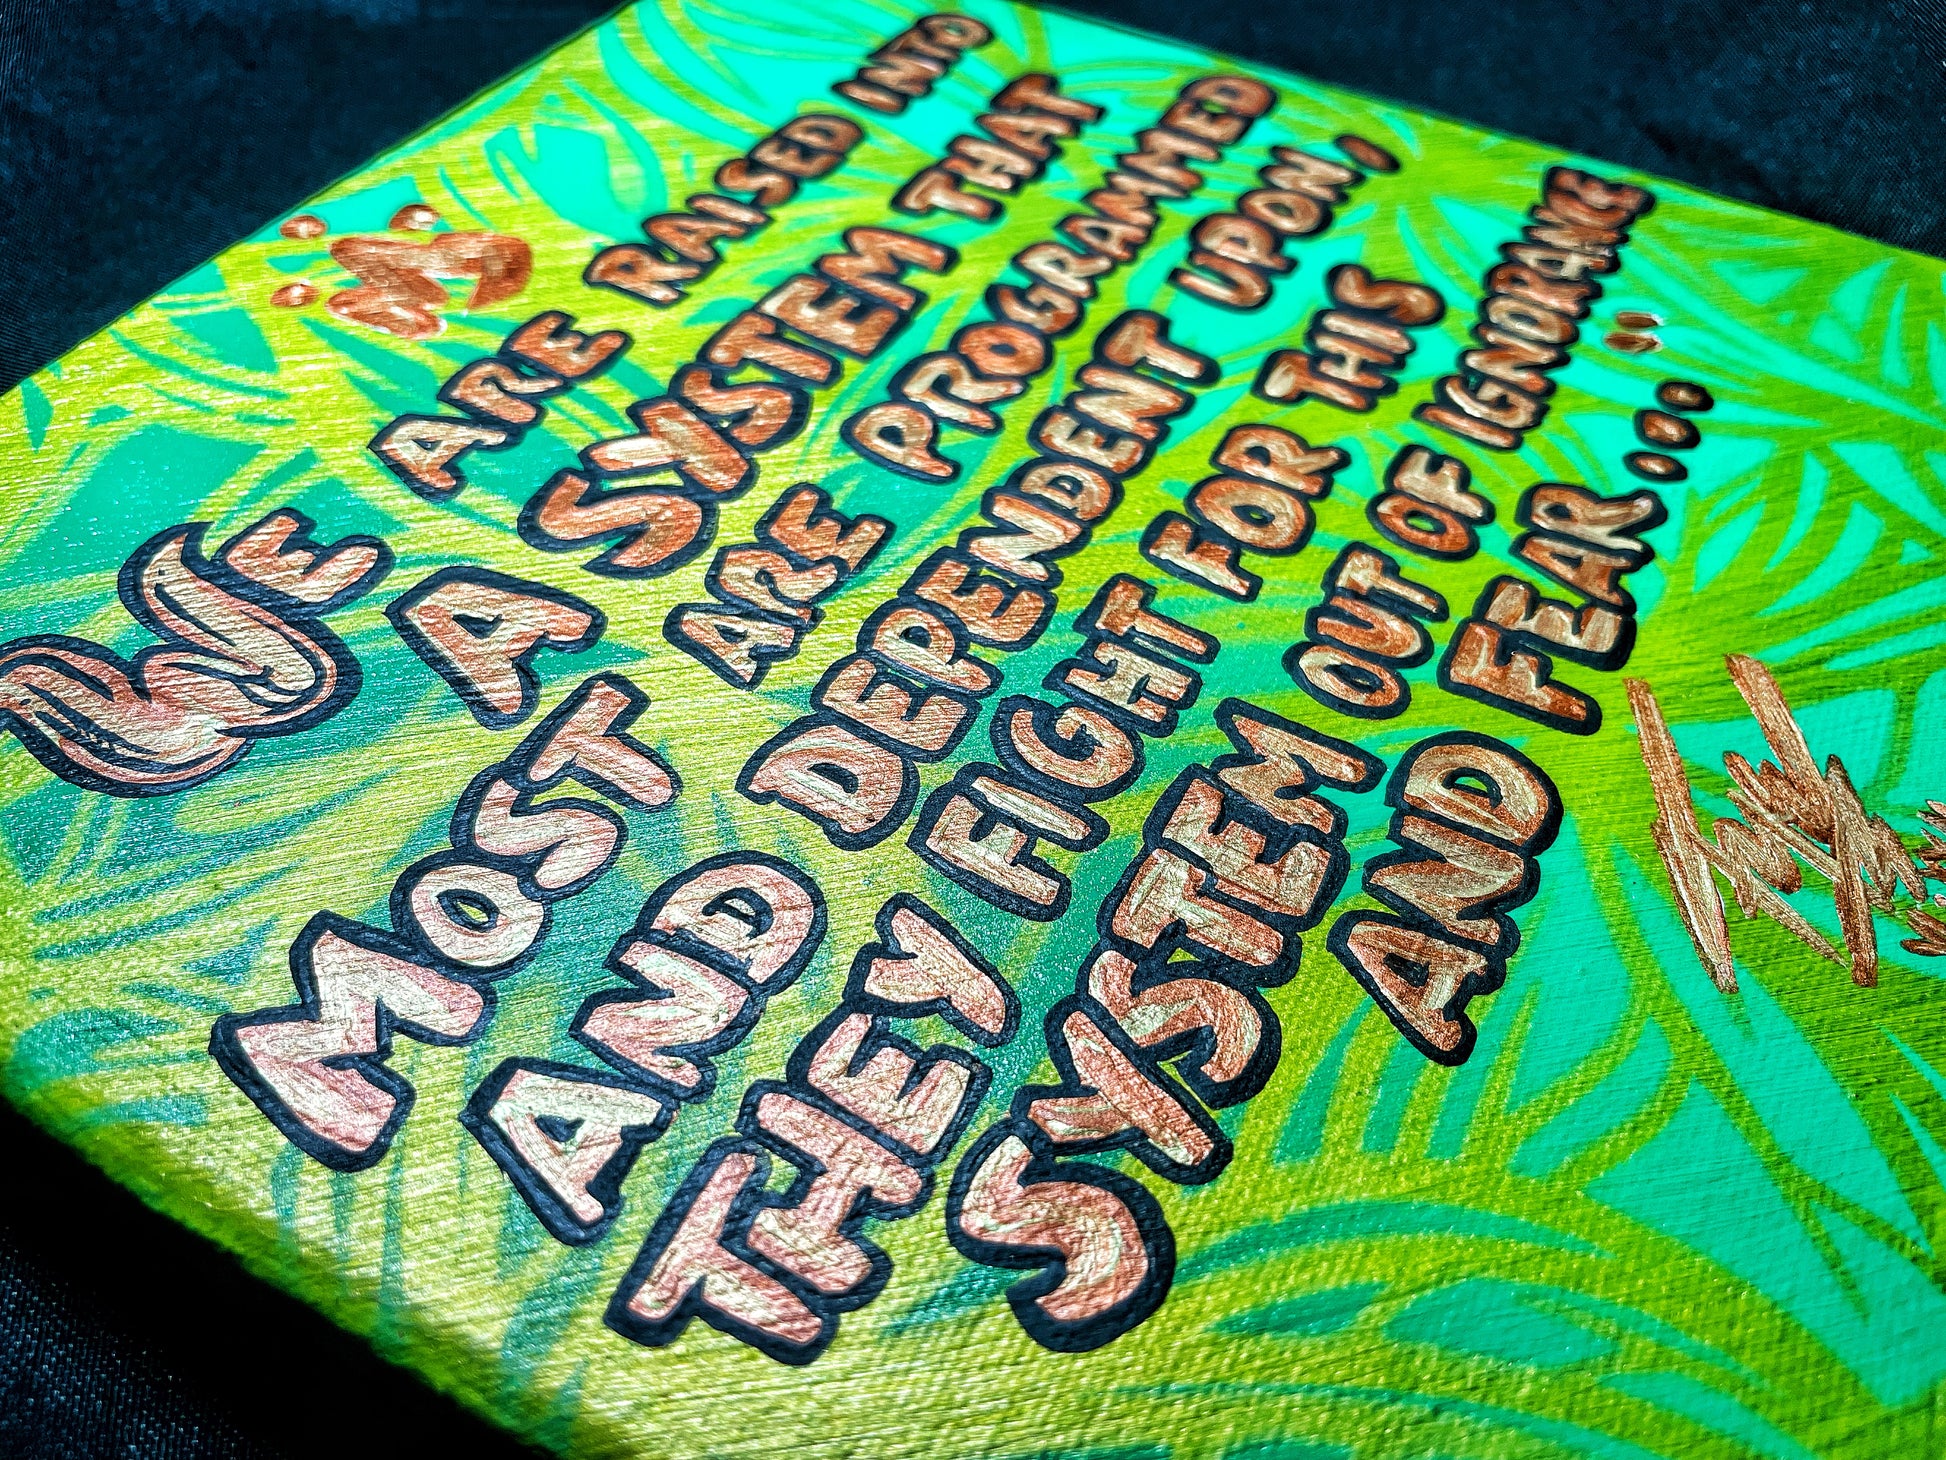 WE ARE RAISED INTO
A SYSTEM THAT
MOST ARE PROGRAMMED
AND DEPENDENT UPON,
THEY FIGHT FOR THIS
SYSTEM OUT OF IGNORANCE
AND FEAR..."